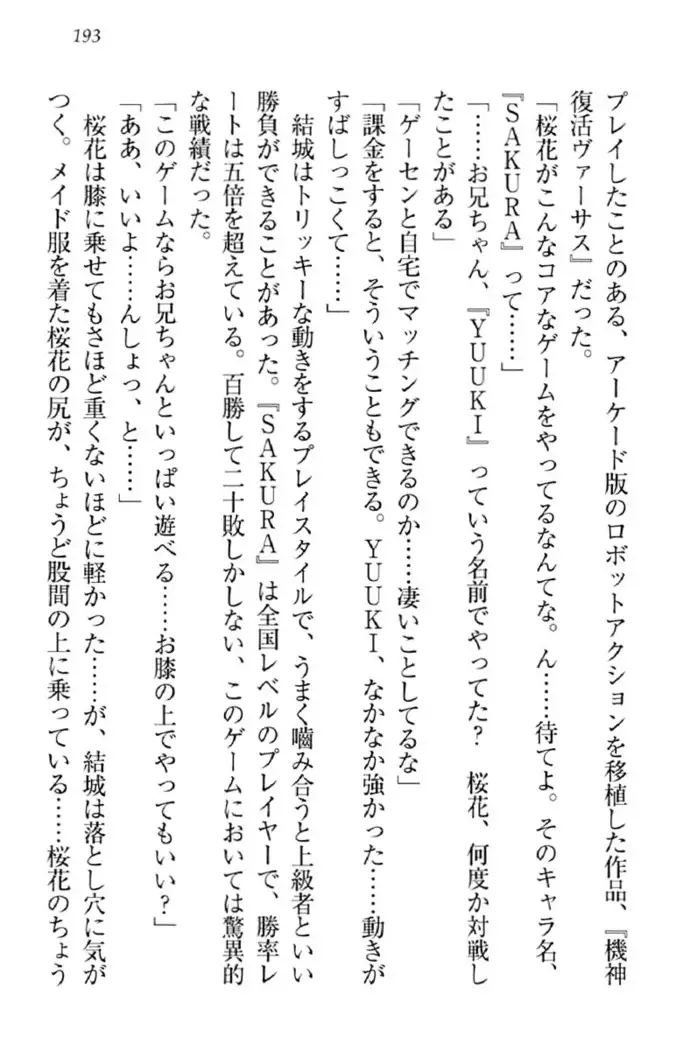 193
プレイしたことのある、アーケード版のロボットアクションを移植した作品、『機神
復活ヴァーサス』だった。
「桜花がこんなコアなゲームをやってるなんてな。ん……待てよ。そのキャラ名、
『SAKURA』って……」
「……お兄ちゃん、『YUUKI』っていう名前でやってた？　桜花、何度か対戦し
たことがある」
「ゲーセンと自宅でマッチングできるのか……凄いことしてるな」
「課金をすると、そういうこともできる。YUUKI、なかなか強かった……動きが
すばしっこくて……」
結城はトリッキーな動きをするプレイスタイルで、うまく噛み合うと上級者といい
勝負ができることがあった。『SAKURA』は全国レベルのプレイヤーで、勝率レ
ートは五倍を超えている。百勝して二十敗しかしない、このゲームにおいては驚異的
な戦績だった。
「このゲームならお兄ちゃんといっぱい遊べる……お膝の上でやってもいい？」
「ああ、いいよ……んしょっ、と……」
桜花は膝に乗せてもさほど重くないほどに軽かった……が、結城は落とし穴に気が
つく。メイド服を着た桜花の尻が、ちょうど股間の上に乗っている……桜花のちょう